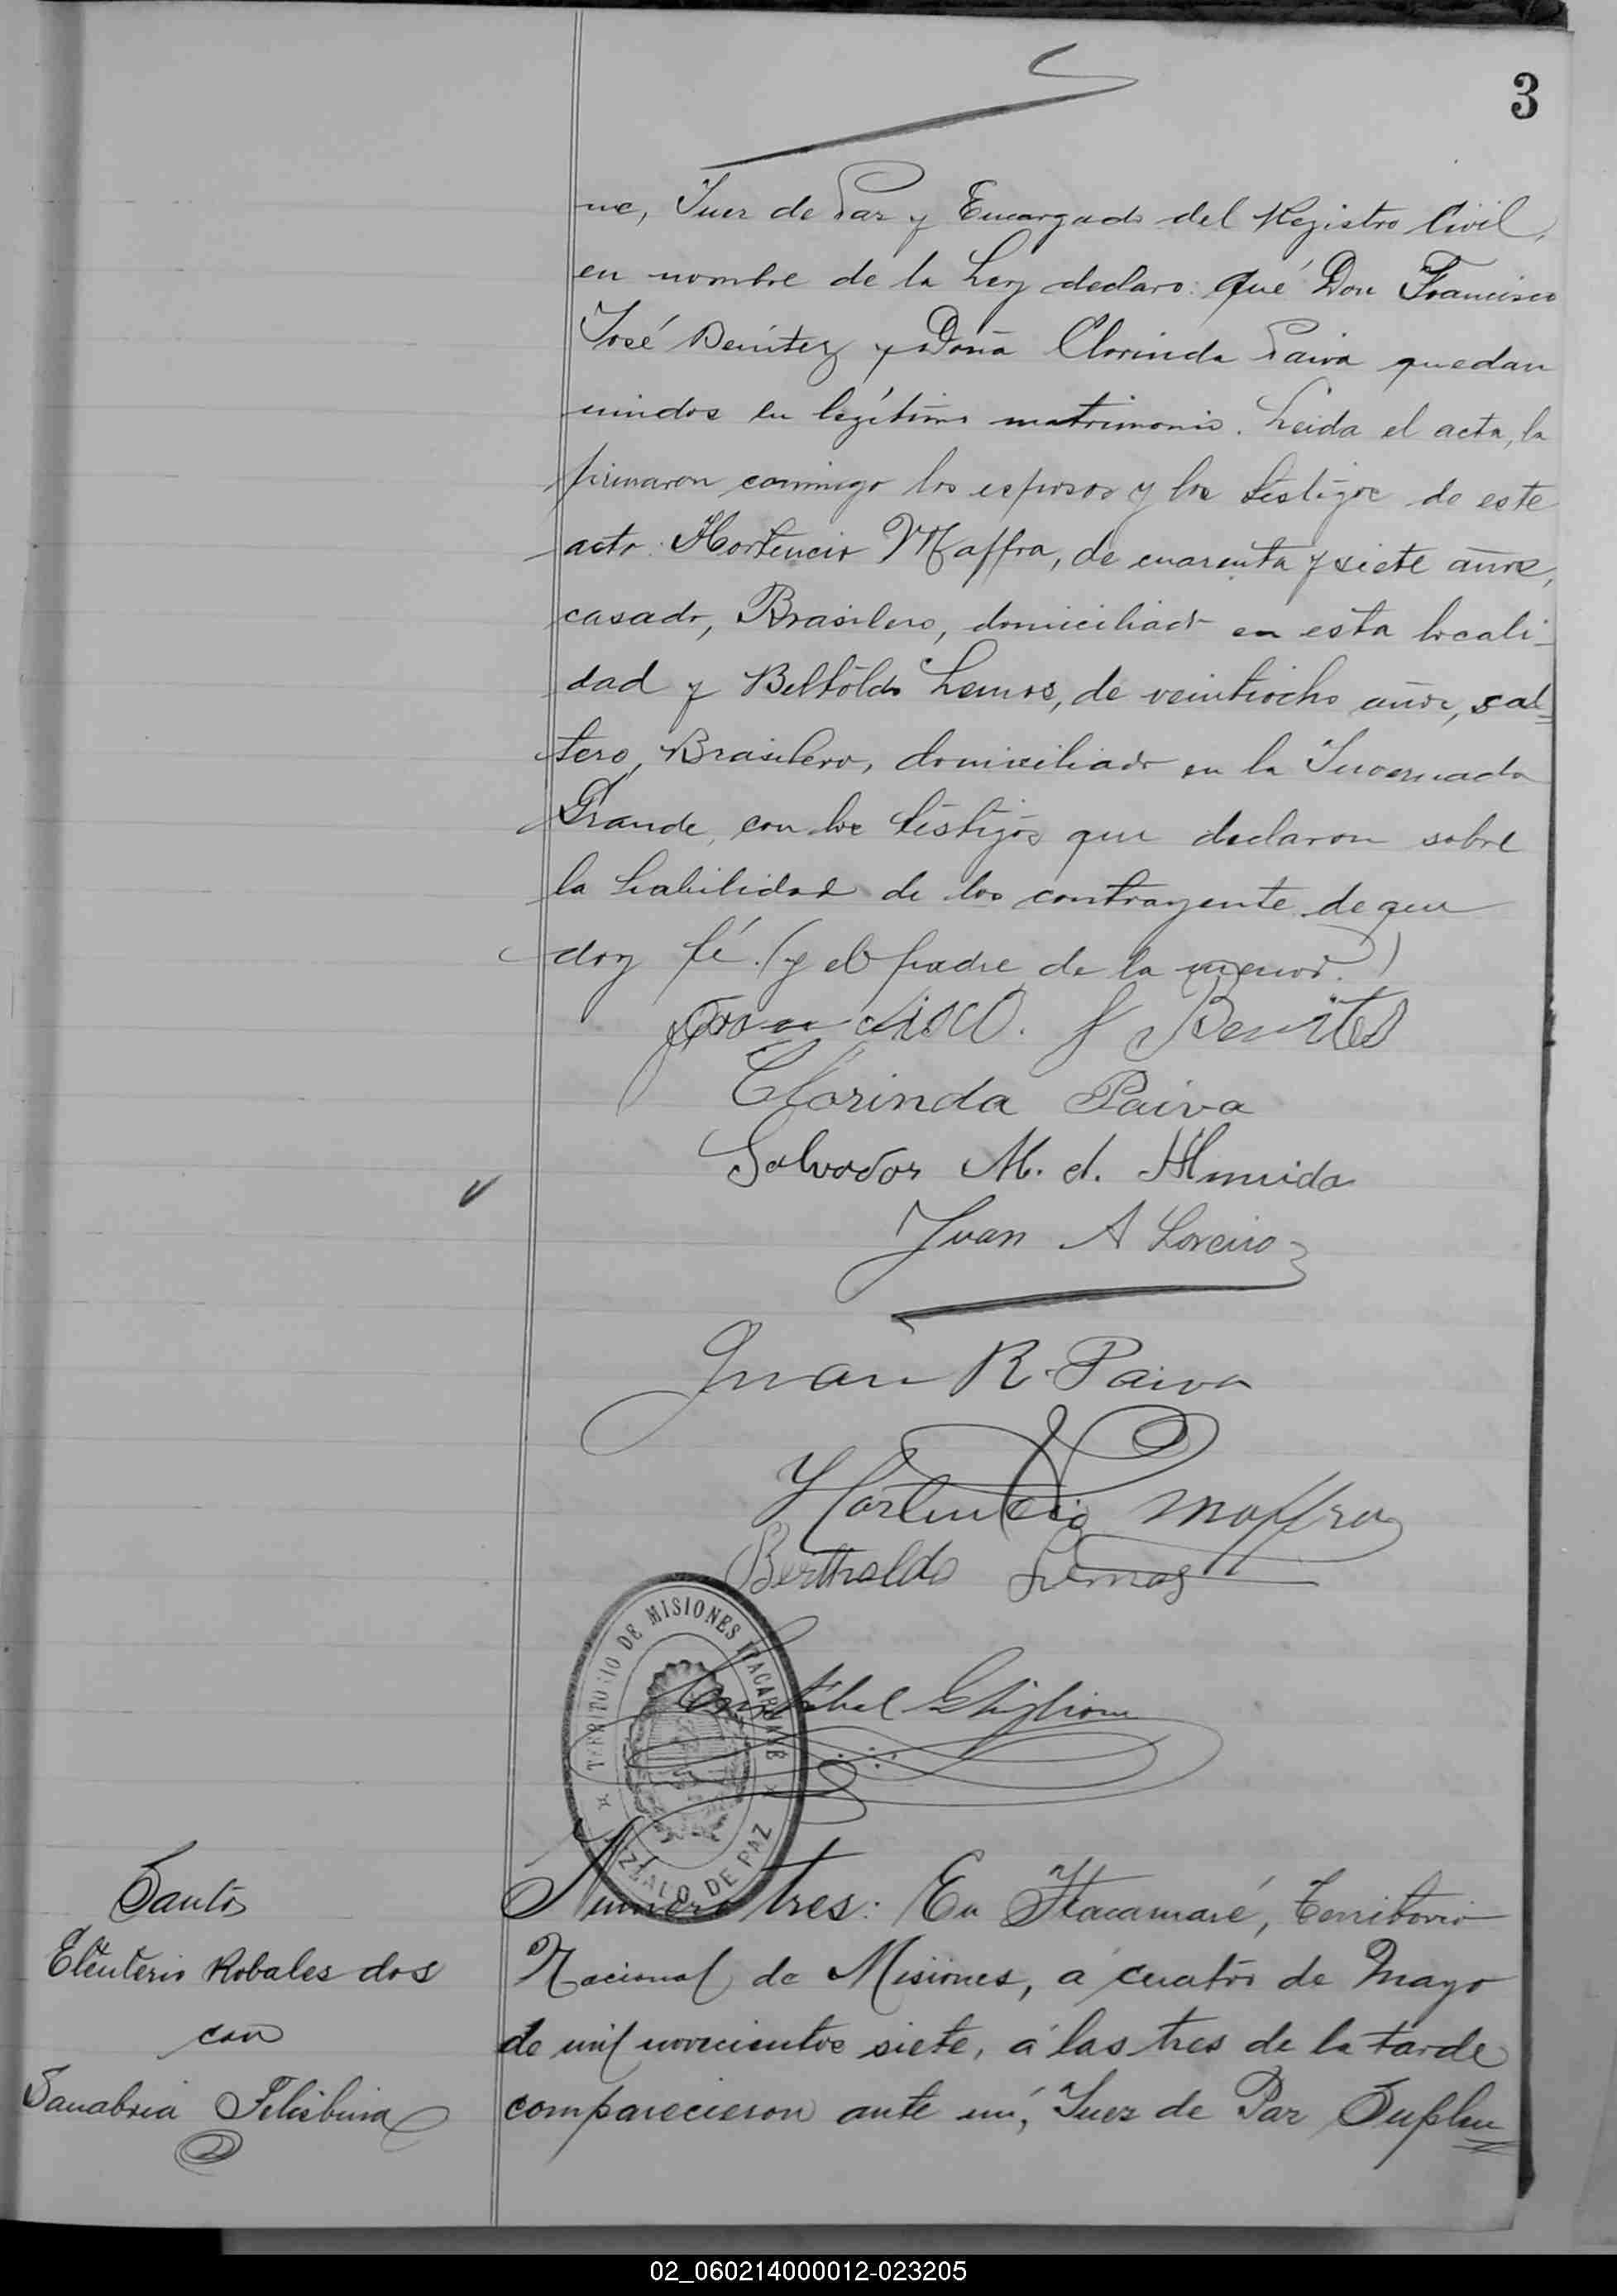 3
ne, Juez de Paz y Encargado del Registro Civil,
en nombre de la Ley declaro: que Don Francisco
José Benítez y Doña Clorinda Paiva quedan
unidos en legítimo matrimonio. Leida el acta, la
firmaron conmigo los esposos y los testigos de este
acto: Hortencio Maffra, de cuarenta y siete años,
casado, Brasilero, domiciliado en esta locali-
dad y Beltoldo Lemos, de veintiocho años, sol=
tero, Brasilero, domiciliado en la Invernada
Grande, con los testigos que declaron sobre
la habilidad de los contrayente de que
doy fé. (y el padre de la menor.)
Francisco. J Benites
Clorinda Paiva
Salvador M. d. Almeida
Juan A Loreiro
Juan R. Paiva
Hortencio Maffra
Bertholdo Lemos
TERRITORIO DE MISIONES ITACARUARÉ
JUZGADO DE PAZ
Santos
Eleuterio Robales dos
con
Sanabria Felisbina
Numero tres: En Itacaruaré, Territorio
Nacional de Misiones, a cuatro de Mayo
de mil novecientos siete, á las tres de la tarde
comparecieron ante mí, Juez de Paz Suplen=
02_060214000012-023205